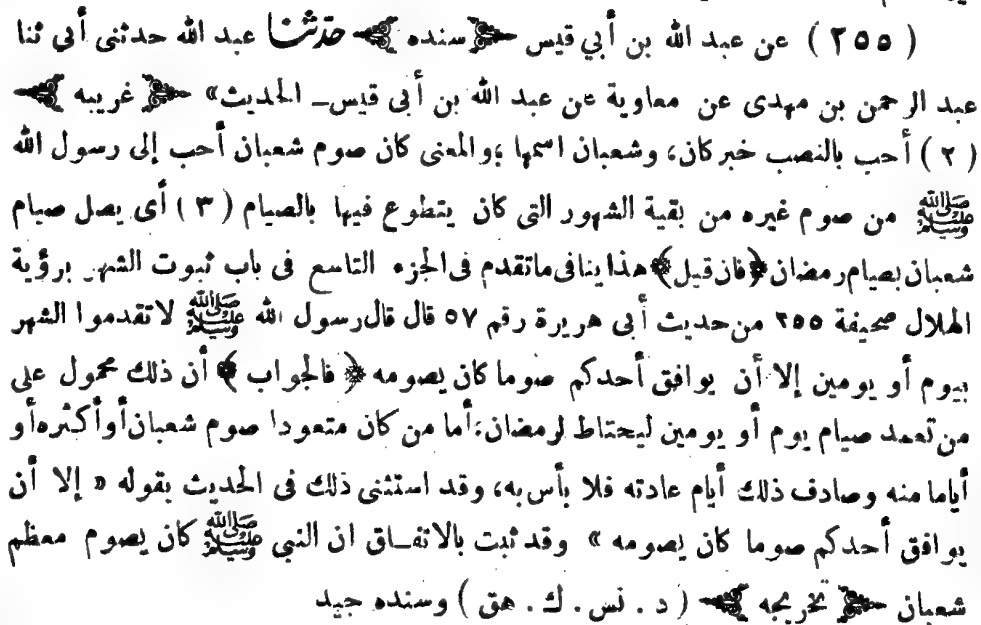 ( ٢٥٥ ) عن عبد الله بن أبي قيس ﴿ سنده ﴾ حدثنا عبد الله حدثنى أبى ثنا
عبد الرحمن بن مهدى عن معاوية عن عبد الله بن أبى قيس ـ الحديث» ﴿ غريبه ﴾
( ٢ ) أحب بالنصب خبر كان، وشعبان اسمها ؛ والمعنى كان صوم شعبان أحب إلى رسول الله
ﷺ من صوم غيره من بقية الشهور التى كان يتطوع فيها بالصيام ( ٣ ) أى يصل صيام
شعبان بصيام رمضان ﴿ فان قيل ﴾ هذا ينافى ما تقدم فى الجزء التاسع فى باب ثبوت الشهر برؤية
الهلال صحيفة ٢٥٥ من حديث أبى هريرة رقم ٥٧ قال قال رسول الله ﷺ لا تقدموا الشهر
بيوم أو يومين إلا أن يوافق أحدكم صوما كان يصومه ﴿ فالجواب ﴾ أن ذلك محمول على
من تعمد صيام يوم أو يومين ليحتاط لرمضان، أما من كان متعودا صوم شعبان أو أكثره أو
أياما منه وصادف ذلك أيام عادته فلا بأس به، وقد استثنى ذلك فى الحديث بقوله « إلا أن
يوافق أحدكم صوما كان يصومه » وقد ثبت بالاتفـاق ان النبي ﷺ كان يصوم معظم
شعبان ﴿ تخريجه ﴾ ( د . نس . ك . هق ) وسنده جيد